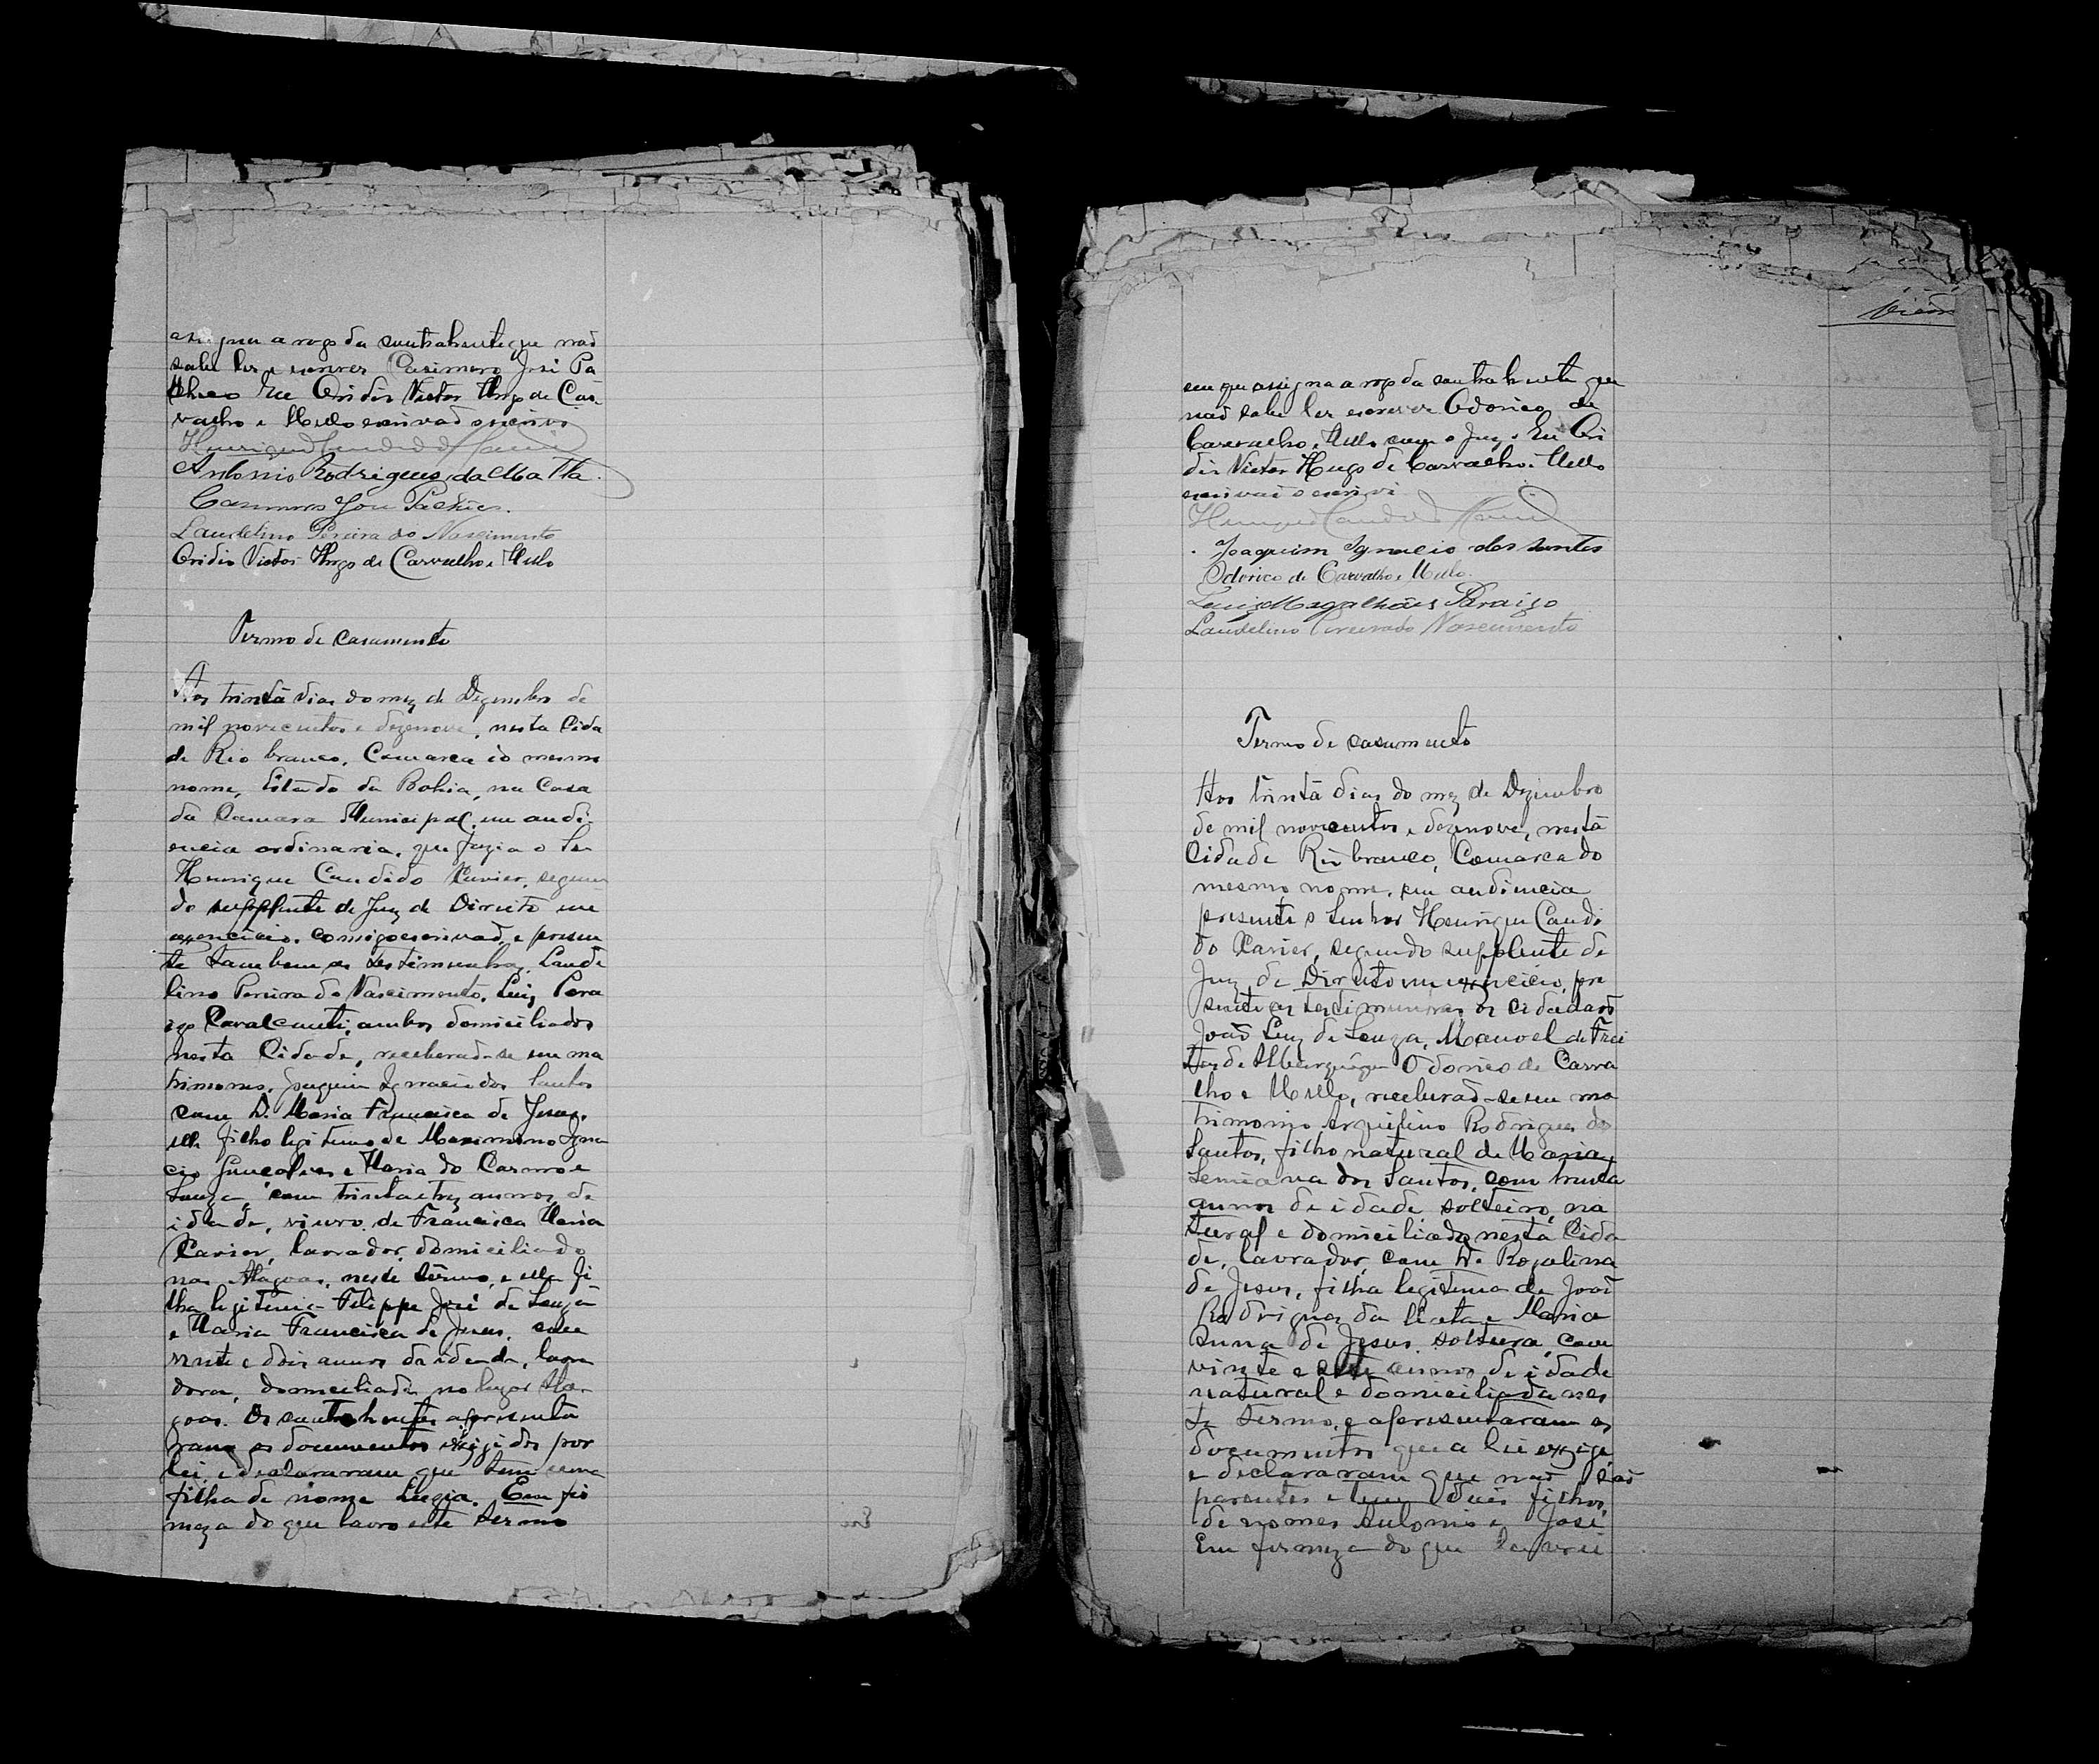 assigna a rogo da contrahente que naõ
sabe ler e escrever Casimiro José Pa
checo Eu Ovidio Victor Hugo de Car
valho e Mello escrivaõ o escrivi
Henrique Candido
Antonio Rodrigues da Matta.
Casimiro José Pacheco.
Laudelino Pereira do Nascimento
Ovidio Victor Hugo de Carvalho e Mello
Termo de casamento
Aos trinta dias do mez de Dezembro de
mil novecentos e dezenove, nesta Cida
de Rio branco, Comarca do mesmo
nome, Estado da Bahia, na Casa
da Camara Municipal, em audi-
encia ordinaria, que fazia o Sr
Henrique Candido Xavier, segun
do supplente de Juiz de Direito em
exercicio, comigo escrivaõ, e presen
te tambem as testimunhas, Laude
lino Pereira do Nascimento, Luiz
Cavalcanti, ambos domiciliados
nesta Cidade, receberaõ-se em ma
trimonio, Joaquim Ignacio dos Santos
com D. Maria Francisca de Jesus,
elle filho legitimo de Maximino Igna
cio Gonçalves e Maria do Carmo e
Souza, com trinta e trez annos de
idade, viuvo de Francisca Maria
Xavier, lavrador, domiciliado
nas Alagoas, neste termo, e ella fi-
lha legitima Felippe José de Souza
e Maria Francisca de Jesus, com
vinte e dois annos de idade, lavra
dora, domiciliada no lugar Ala-
goas. Os contrahentes apresenta
ram os documentos exigidos por
lei, e declararam que tem uma
filha de nome Luzia. Em fir
meza do que lavro este termo
em que assigna a rogo da contrahente que
naõ sabe ler escrever Odorico de
Carvalho e Mello com o Juiz. Eu Ovi
dio Victor Hugo de Carvalho e Mello
escrivaõ o escrivi
Henrique Candido
Joaquim Ignacio dos Santos
Odorico de Carvalho e Mello.
Luiz Magalhães Paraizo
Laudelino Pereira do Nascimento
Termo de casamento
Aos trinta dias do mez de Dezembro
de mil novecentos e dezenove, nesta
Cidade Rio branco, Comarca do
mesmo nome, em audiencia
presente o Senhor Henrique Candi
do Xavier, segundo supplente de
Juiz de Direito em exercicio, pre
sente as testimunhas os cidadaõs
Joaõ Luiz de Souza, Manoel de Frei
tas de Odorico de Carva
lho e Mello, receberaõ-se em ma
trimonio Rodrigues dos
Santos, filho natural de Maria
dos Santos, com trinta
annos de idade, solteiro, na
tural e domiciliado nesta Cida
de, lavrador, com D. Rozalina
de Jesus, filha legitima de Joaõ
Rodrigues da e Maria
Anna de Jesus, solteira, com
vinte e sete annos de idade
natural e domiciliada nes
te termo, e apresentaram os
documentos que a lei exige
e declararam que naõ saõ
parentes e tem dois filhos
de nomes Antonio e José
Em firmeza do que lavrei